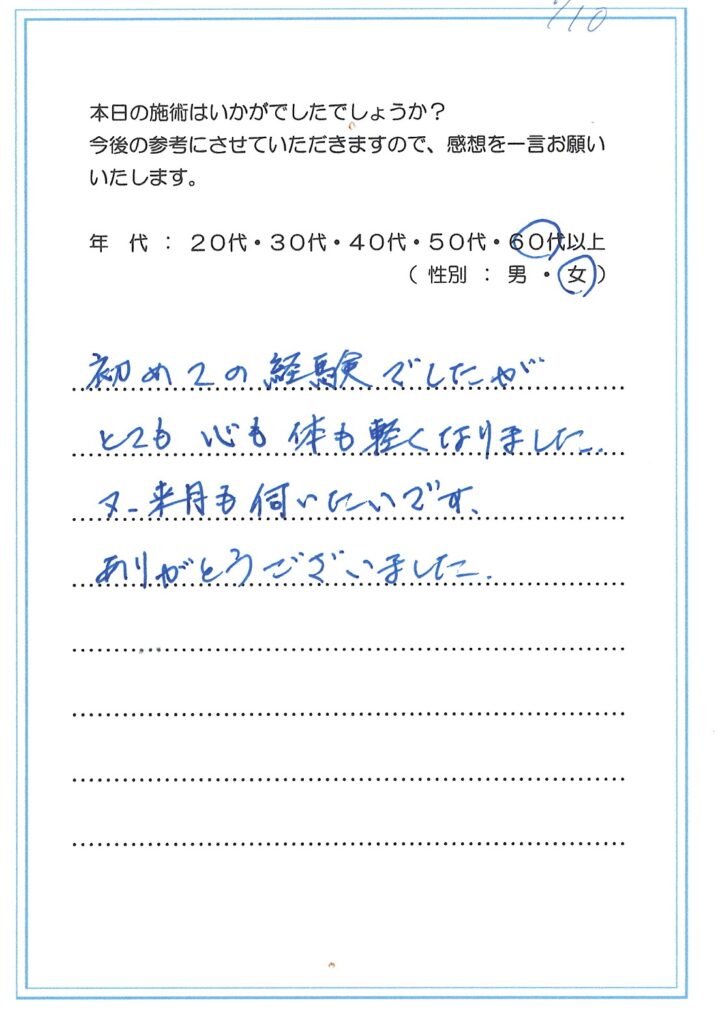 /10
本日の施術はいかがでしたでしょうか？
今後の参考にさせていただきますので、感想を一言お願い
いたします。
年　代　：　２０代・３０代・４０代・５０代・６０代以上
（ 性別　：　男　・　女 ）
初めての経験でしたが
とても 心も 体も軽くなりました.
又、来月も伺いたいです、
ありがとうございました.